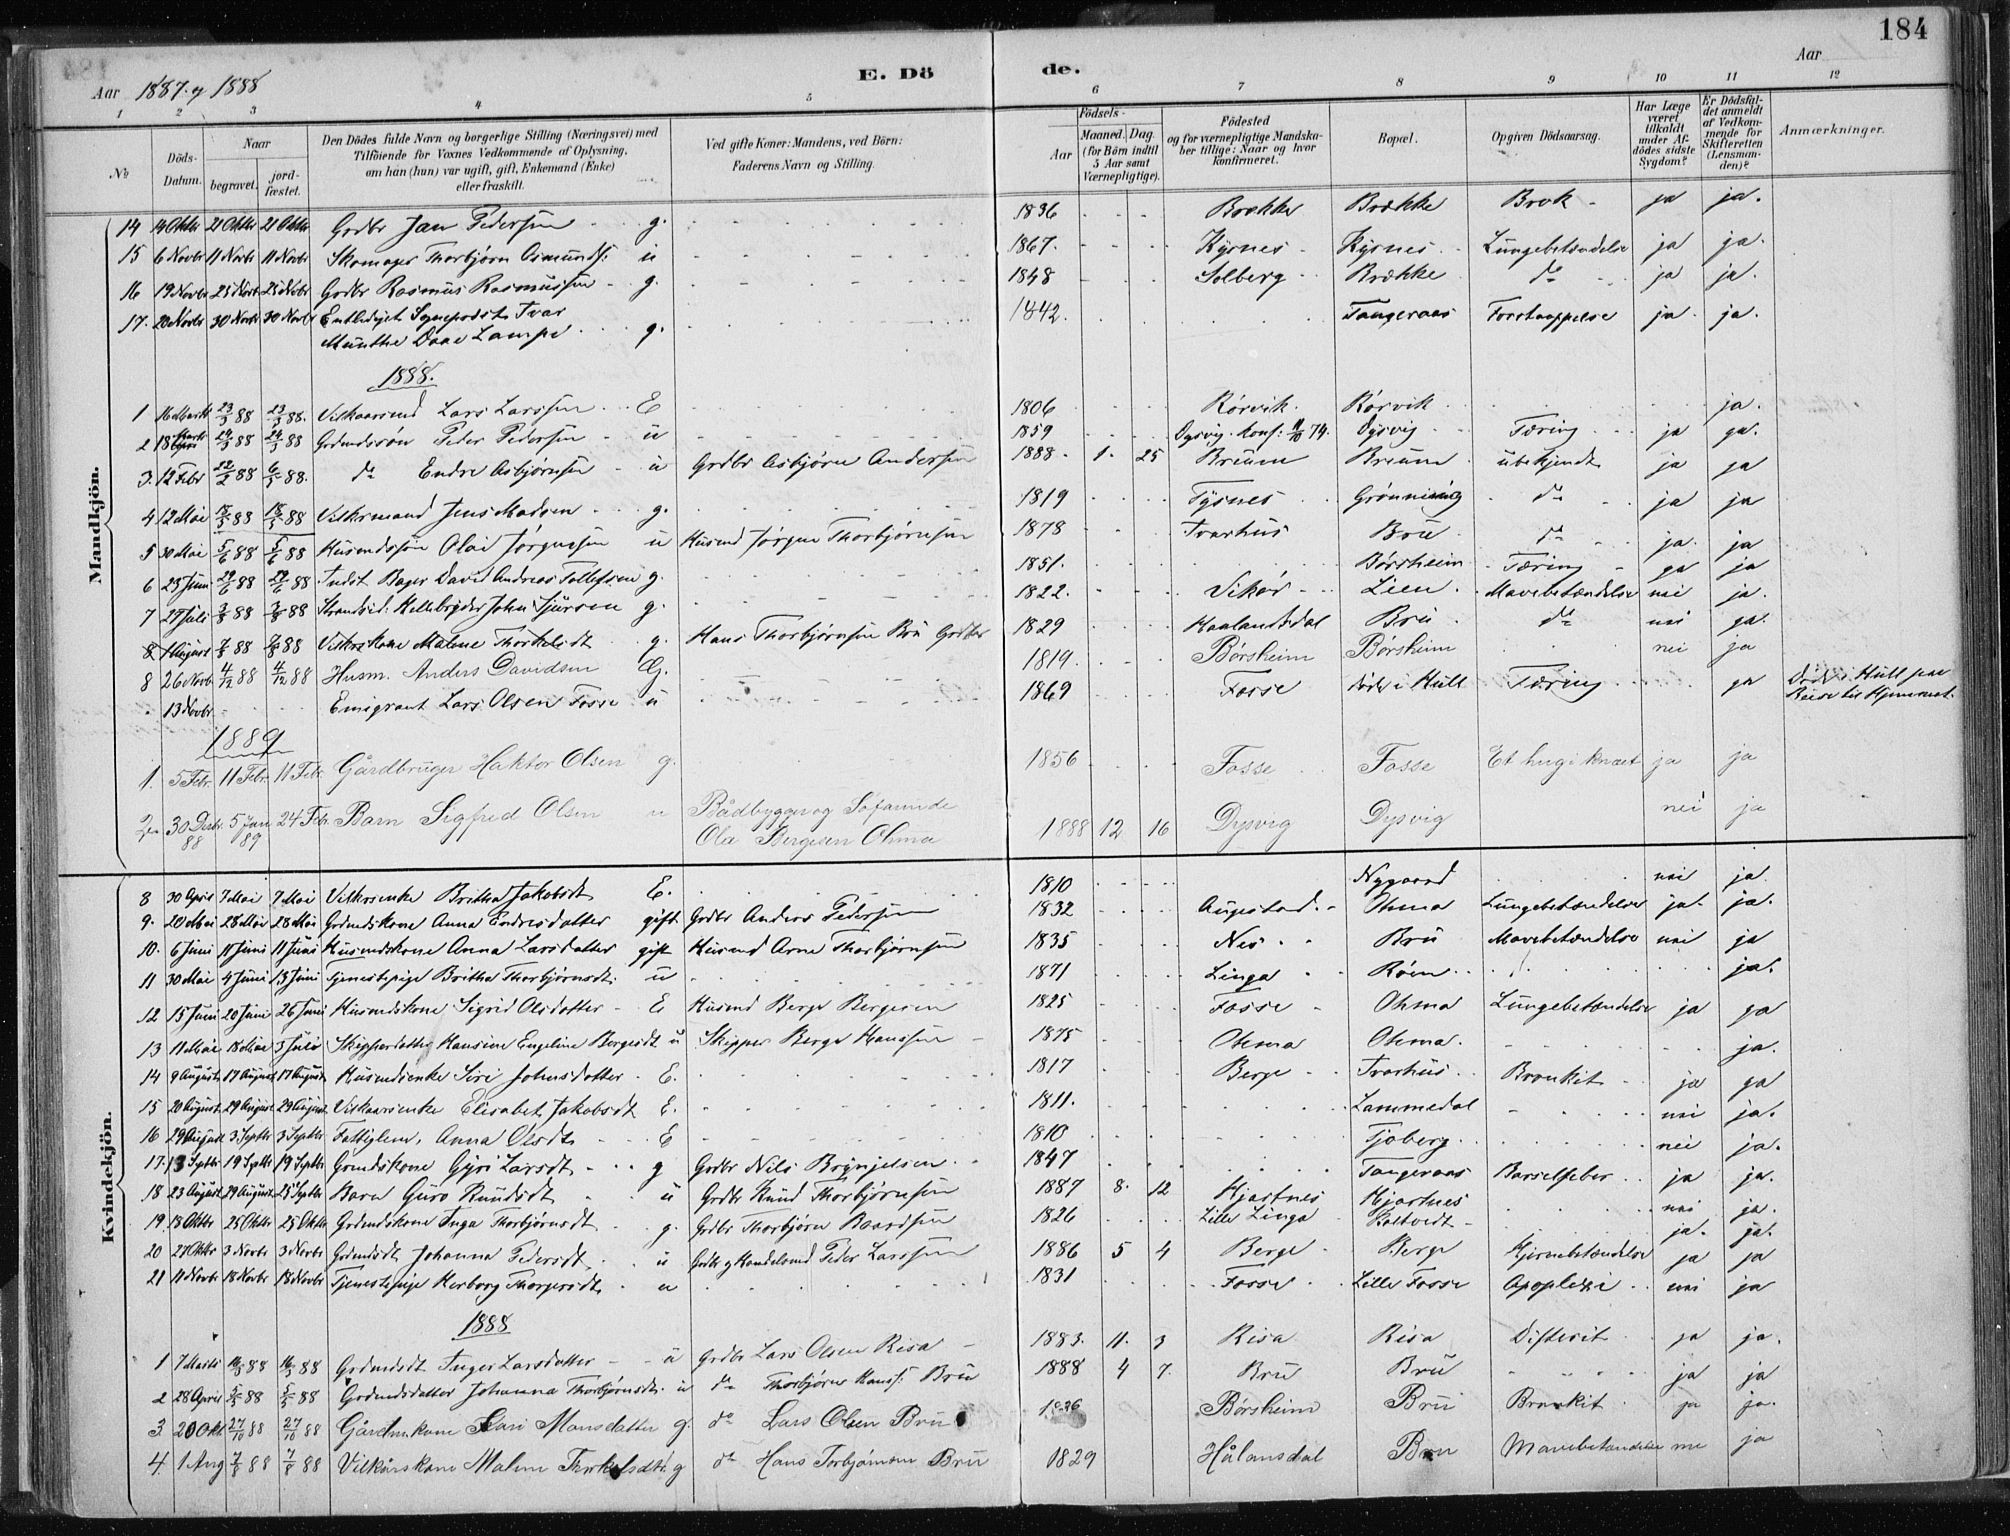 184
Aar 1887 og 1888
E. Dö de.
Aar
1 2 3 4 5 6 7 8 9 10 11 12
№
Döds-Datum.
Naar
begravet.
jord-fæstet.
Den Dödes fulde Navn og borgerlige Stilling (Næringsvei) med Tilföiende for Voxnes Vedkommende af Oplysning, om han (hun) var ugift, gift, Enkemand (Enke) eller fraskilt.
Ved gifte Koner: Mandens, ved Börn: Faderens Navn og Stilling.
Födsels-
Aar
Maaned. Dag.
(for Börn indtil 5 Aar samt Værnepligtige).
Födested og for værnepligtige Mandska-ber tillige: Naar og hvor konfirmeret.
Bopæl.
Opgiven Dödsaarsag.
Har Læge været tilkaldt under Af-dödes sidste Sygdom?
Er Dödsfal-det anmeldt af Vedkom-mende for Skifteretten (Lensman-den)?
Anmærkninger.
Mandkjön.
14 14 Oktbr 21 Oktbr 21 Oktbr Grdbr Jan Pedersen g. 1836 Brække Brække Brok ja ja.
15 6 Novbr 11 Novbr 11 Novbr Skomager Thorbjørn Asmunds: u 1867. Kysnes Kysnes Lungebetændelse ja ja.
16 19 Novbr 25 Novbr 25 Novbr Grdbr Rasmus Rasmussen g. 1848 Solberg Brække do ja ja.
17. 20 Novbr 30 Novbr 30 Novbr Entlediget Sogneprest Ivar
Munthe Daae Lampe g. 1842. Tangeraas Forstoppelse ja ja.
1888.
1 16 Marts 23/3 88 23/3 88. Vilkaarsmd Lars Larssen E 1806 Rørvik Rørvik ja.
2 18 Marts 24/3 88 24/3 88 Grdmdssøn Peder Pedersen u 1859 Dysvig. Konf: 4/10 74. Dysvig Tæring ja ja.
3. 12 Febr 22/2 88 6/3 88. do Endre Asbjørnsen u Grdbr Asbjørn Andersen 1888 1. 25 Breum Breum ubekjendt ja ja
4 12 Mai 18/5 88 18/5 88 Vilkrmand Jens Madsen g. 1819 Tysnes Grønning do ja ja
5 30 Mai 5/6 88 5/6 88 Husmdssøn Olai Jørgensen u Husmd Jørgen Thorbjørnsen 1878 Tvarhus Bru do ja ja
6 23 Juni 29/6 88 29/6 88 Indst. Bager David Andreas Tollefsen g. 1851. Børsheim Tæring ja ja
7 29 Juli 3/8 88 3/8 88 Strandsid: Hellebryder John Sjursen g. 1822. Vikør Lien Mavebetændelse nei ja.
8 1 August 7/8 88 7/8 88 Vilkrskone Malene Thorkelsdt g. Hans Thorbjørnsen Bru Grdbr 1829 Haalandsdal Bru do nei ja.
8 26 Novb. 4/12 88 4/12 88 Husm. Anders Davidsen G. 1819. Børsheim Børsheim nei ja
13 Novbr Emigrant Lars Olsen Fosse u 1869 Fosse døde i Hull Tæring ja Døde i Hull paa
Reise til Hjemmet.
1889
1. 5 Febr. 11 Febr. 11 Febr. Gårdbruger Haktor Olsen g. 1856 Fosse Fosse Et hug i knæet ja ja
2 30 Desbr 88 5 Jan 89 24 Febr. Barn Sigfred Olsen u Bådbygger og Søfarende
Ola Bergesen Ohma 1888 12 16 Dysvig Dysvig nei ja
Kvindekjön.
8 30 April 7 Mai 7 Mai Vilkrsenke Britha Jakobsdt E. 1810 Nygaard nei ja.
9. 20 Mai 28 Mai 28 Mai Grdmdskone Anna Endresdatter gift. Grdbr Anders Pedersen 1832 Augestad Ohma Lungebetændelse ja ja.
10. 6 Juni 11 Juni 11 Juni Husmdskone Anna Larsdatter gift Husmd Arne Thorbjørnsen 1835 Nes Bru Mavebetændelse nei ja
11 30 Mai 4 Juni 13 Juni Tjenestepige Britha Thorbjørnsdt. u 1871 Linga Røen ja.
12 15 Juni 20 Juni 26 Juni Husmdskone Sigrid Olsdatter E Husmd Berge Bergesen 1825 Fosse Ohma Lungebetændelse ja ja
13 11 Mai 18 Mai 3 Juli Skipperdatter Hansine Engeline Bergesdt u Skipper Berge Hanssen 1875 Ohma Ohma. ja.
14 9 August 17 August 17 August Husmdsenke Siri Johnsdatter E. 1817 Berge Tvarhus Bronkit ja ja
15 20 August 29 August 29 August Vilkaarsenke Elisabet Jakobsdt E. 1811. Lammedal nei ja.
16 29 August 3 Septbr 3 Septbr Fattiglem, Anna Olsdt E 1810 Tjoberg nei ja.
17. 13 Septbr 19 Septbr 19 Septbr Grmdskone Gyri Larsdt g Grdbr Nils Brynjelsen 1847 Tangeraas Barselfeber ja ja.
18 23 August 29 August 25 Septbr Barn Guro Knudsdt u Grdbr Knud Thorbjørnsen 1887 8. 12 Hjartnes Hjartnes nei ja.
19. 18 Oktbr 25 Oktbr 25 Oktbr Grdmdskone Inga Thorbjørnsdt g. Grdbr Thorbjørn Baardsen 1826 Lille Linga Koltvedt ja. ja.
20 27 Oktbr 3 Novbr 3 Novbr Grdmdsdt Johanna Pedersdt u Grdbr og Handelsmd Peder Larssen 1886 5 4 Berge Berge Hjernebetændelse ja ja
21 11 Novbr 18 Novbr 18 Novbr Tjenestepige Herborg Thorgersdt u 1831 Fosse Lille Fosse Apoplexi nei ja
1888
1 7 Marts 16/3 88 16/3 88 Grdmdsdt Inger Larsdatter u Grdbr Lars Olsen Risa 1883. 11. 3 Risa Risa Difterit ja ja.
2 28 April 5/5 88 5/5 88 Grdmdsdatter Johanna Thorbjørnsdt. u do Thorbjørn Hanss: Bru 1888 4 7. Bru Bru ja ja
3 20 Okt. 27/10 88 27/10 88 Gårdmkone Kari Monsdatter g. do Lars Olsen Bru 1836 Børsheim Bru Bronkit ja ja.
4. 1 Aug 7/8 88 7/8 88 Vilkårskone Malene Thorkelsdtr. g do Hans Torbjørnsen Bru 1829 Hålansdal Bru Mavebetændelse nei ja